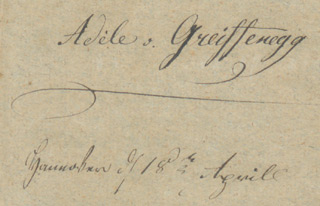 Adèle v. Greiffenegg
Hannover d 18t April